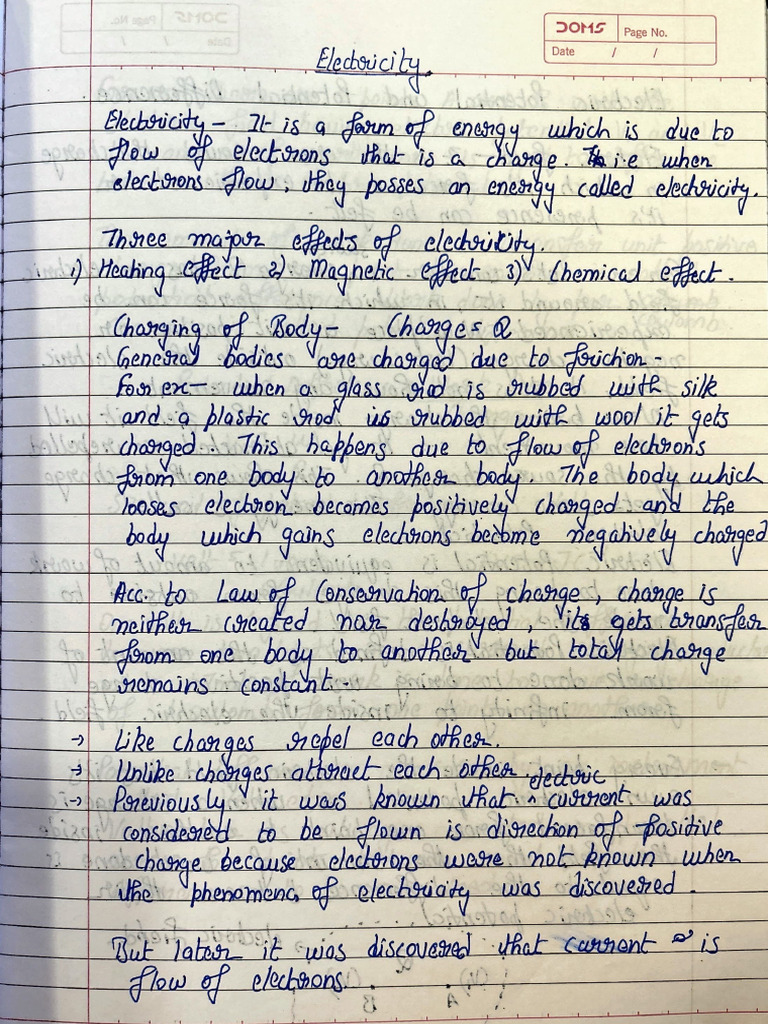 DOMS
Page No.
Date / /
Electricity.
Electricity – It is a form of energy which is due to
flow of electrons that is a charge. i.e when
electrons flow, they posses an energy called electricity.
Three major effects of electricity.
1) Heating effect 2) Magnetic effect 3) Chemical effect.
Charging of Body – Charge = Q
General bodies are charged due to friction –
For ex – when a glass rod is rubbed with silk
and a plastic rod is rubbed with wool it gets
charged. This happens due to flow of electrons
from one body to another body. The body which
looses electron becomes positively charged and the
body which gains electrons become negatively charged
Acc. to Law of Conservation of charge, charge is
neither created nor destroyed, its gets transfer
from one body to another but total charge
remains constant.
→ Like charges repel each other.
→ Unlike charges attract each other.
→ Previously it was known that ^ electric current was
considered to be flown is direction of positive
charge because electrons were not known when
the phenomena of electricity was discovered.
But later it was discovered that current is
flow of electrons.